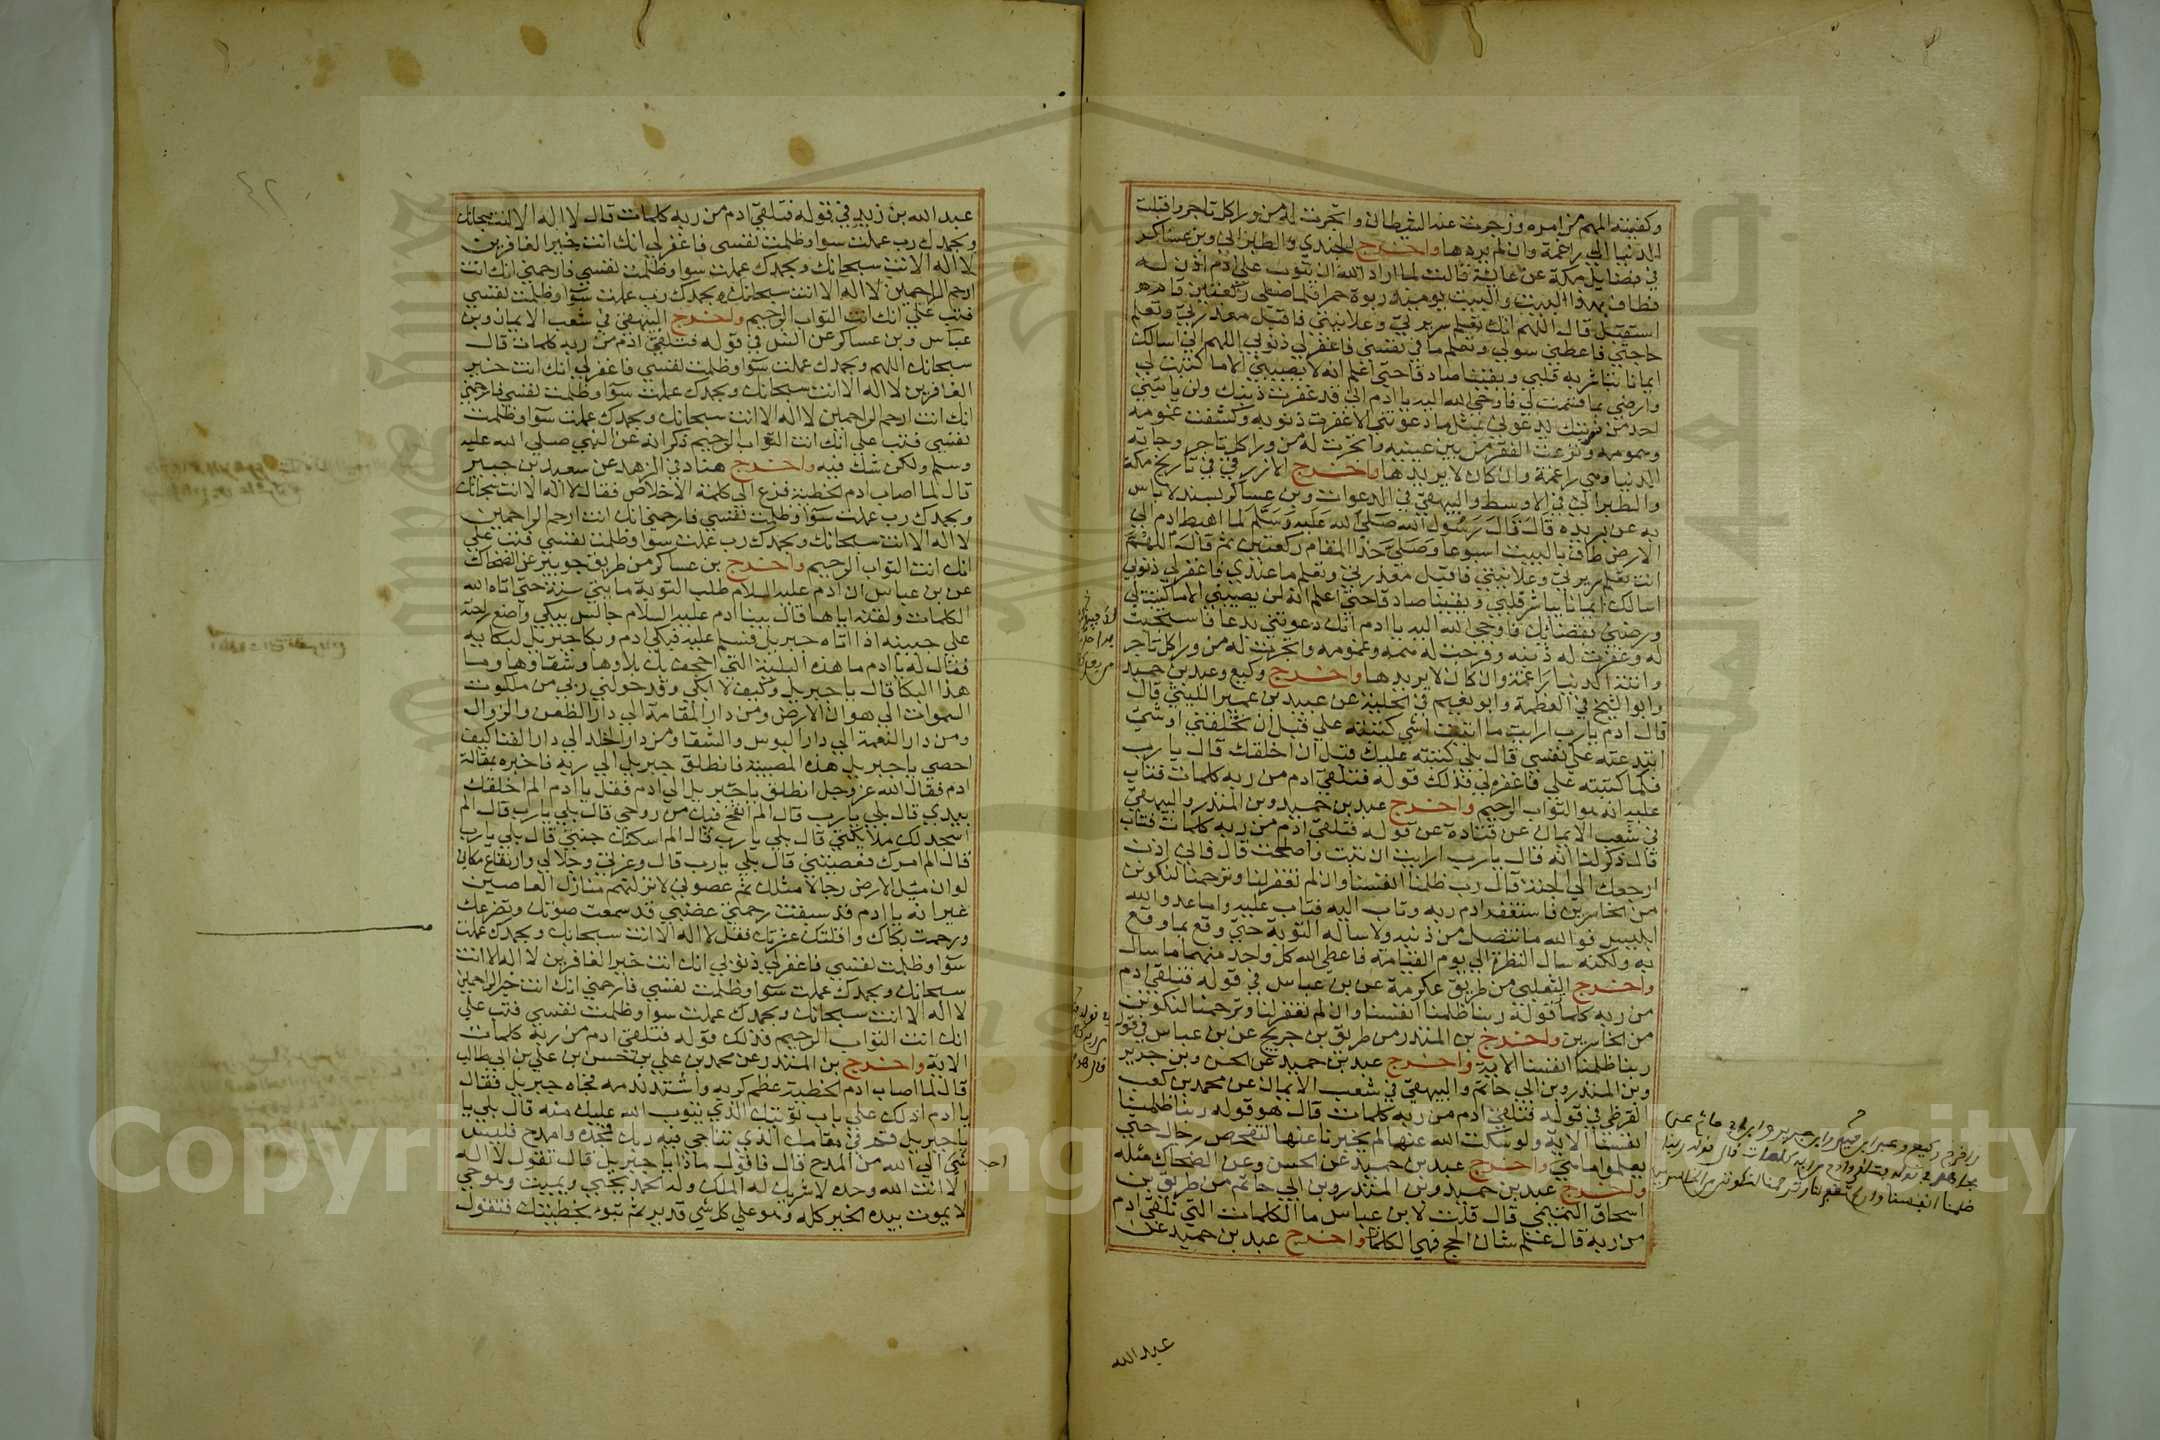 وكفيته المهم من امره وزجرت عنه الشيطان واتجرت له من ورا كل تاجر واقبلت
الدنيا اليه راغمة وان لم يردها واخرج الجندي والطبراني وبن عساكر
في فضايل مكة عن عايشة قالت لما اراد الله ان يتوب على ادم اذن له
فطاف بهذا البيت والبيت يوميذ ربوة حمرا فلما صلى ركعتين قام
استقبل قال اللهم انك تعلم سريرتي وعلانيتي فاقبل معذرتي وتعلم
حاجتي فاعطني سولي وتعلم ما في نفسي فاغفر لي ذنوبي اللهم اني اسالك
ايمانا يباشر به قلبي ويقينا صادقا حتى اعلم انه لا يصيبني الا ما كتبت لي
وارضني بما قسمت لي فاوحى الله اليه يا ادم اني قد غفرت ذنبك ولن ياتيني
احد من ذريتك يدعوني بمثل ما دعوتني الا غفرت ذنوبه وكشفت غمومه
وهمومه ونزعت الفقر من بين عينيه واتجرت له من ورا كل تاجر وجاته
الدنيا وهي راغمة وان كان لا يريدها واخرج الازرقي في تاريخ مكة
والطبراني في الاوسط والبيهقي في الدعوات وبن عساكر بسند لا باس
به عن بريدة قال قال رسول الله صلى الله عليه وسلم لما اهبط ادم الى
الارض طاف بالبيت اسبوعا وصلى حذا المقام ركعتين ثم قال اللهم
انت تعلم سريرتي وعلانيتي فاقبل معذرتي وتعلم ما عندي فاغفر لي ذنوبي
اسالك ايمانا يباشر قلبي ويقينا صادقا حتى اعلم انه لن يصيبني الا ما كتبت لي
ورضني بقضايك فاوحى الله اليه يا ادم انك دعوتني بدعا فاستجبت
له وغفرت له ذنبه وفرجت له همه وغمومه واتجرت له من ورا كل تاجر
واتته الدنيا راغمة وان كان لا يريدها واخرج وكيع وعبد بن حميد
وابو الشيخ في العظمة وابو نعيم في الحلية عن عبيد بن عمير الليثي قال
قال ادم يارب ارايت ما اتيت اشي كتبته علي قبل ان تخلقني او شي
ابتدعته على نفسي قال بلى كتبته عليك قبل ان اخلقك قال يا رب
فكما كتبته علي فاغفره لي فذلك قوله فتلقى ادم من ربه كلمات فتاب
عليه انه هو التواب الرحيم واخرج عبد بن حميد وبن المنذر والبيهقي
في شعب الايمان عن قتادة عن قوله فتلقى ادم من ربه كلمات فتاب
قال ذكر لنا انه قال يارب ارايت ان تبت واصلحت قال فاني اذن
ارجعك الى الجنة قال رب ظلمنا انفسنا وان لم تغفر لنا وترحمنا لنكونن
من الخاسرين فاستغفر ادم ربه وتاب اليه فتاب عليه واما عدو الله
ابليس فوالله ما تنصل من ذنبه ولا سال التوبة حتى وقع بما وقع
به ولكنه سال النظرة الى يوم القيامة فاعطى الله كل واحد منهما ما سال
واخرج الثعلبي من طريق عكرمة عن بن عباس في قوله فتلقى ادم
من ربه كلما قوله ربنا ظلمنا انفسنا وان لم تغفر لنا وترحمنا لنكونن
من الخاسرين واخرج بن المنذر من طريق بن جريج عن بن عباس في قوله
ربنا ظلمنا انفسنا الاية واخرج عبد بن حميد عن الحسن وبن جرير
وبن المنذر وبن ابي حاتم والبيهقي في شعب الايمان عن محمد بن كعب
القرظي في قوله فتلقى ادم من ربه كلمات قال هو قوله ربنا ظلمنا
انفسنا الاية ولو سكت الله عنها لم يخبرنا عنها لتفحص رجال حتى
يعلموا ما هي واخرج عبد بن حميد عن الحسن وعن الضحاك مثله
واخرج عبد بن حميد وبن المنذر وبن ابي حاتم من طريق بن
اسحاق التميمي قال قلت لابن عباس ما الكلمات التي تلقى ادم
من ربه قال علم شان الحج فهي الكلمات واخرج عبد بن حميد عن
واخرج وكيع وعبد بن حميد وابن جرير وابن ابي حاتم عن
مجاهد في قوله فتلقى ادم من ربه كلمات قال قوله ربنا
ظلمنا انفسنا وان لم تغفر لنا وترحمنا لنكونن من الخاسرين
عبد الله
عبد الله بن زيد في قوله فتلقى ادم من ربه كلمات قال لا اله الا انت سبحانك
وبحمدك رب عملت سوا وظلمت نفسي فاغفر لي انك انت خير الغافرين
لا اله الا انت سبحانك وبحمدك عملت سوا وظلمت نفسي فارحمني انك انت
ارحم الراحمين لا اله الا انت سبحانك وبحمدك رب عملت سوا وظلمت نفسي
فتب علي انك انت التواب الرحيم واخرج البيهقي في شعب الايمان وبن
عباس وبن عساكر عن انس في قوله فتلقى ادم من ربه كلمات قال
سبحانك اللهم وبحمدك عملت سوا وظلمت نفسي فاغفر لي انك انت خير
الغافرين لا اله الا انت سبحانك وبحمدك عملت سوا وظلمت نفسي فارحمني
انك انت ارحم الراحمين لا اله الا انت سبحانك وبحمدك عملت سوا وظلمت
نفسي فتب علي انك انت التواب الرحيم ذكر انه عن النبي صلى الله عليه
وسلم ولكن شك فيه واخرج هناد في الزهد عن سعيد بن جبير
قال لما اصاب ادم الخطية فزع الى كلمة الاخلاص فقال لا اله الا انت سبحانك
وبحمدك رب عملت سوا وظلمت نفسي فارحمني انك انت ارحم الراحمين
لا اله الا انت سبحانك وبحمدك رب عملت سوا وظلمت نفسي فتب علي
انك انت التواب الرحيم واخرج بن عساكر من طريق جويبر عن الضحاك
عن بن عباس ان ادم عليه السلام طلب التوبة مايتي سنة حتى اتاه الله
الكلمات ولقنه اياها قال بينا ادم عليه السلام جالس يبكي واضع راحته
على جبينه اذا اتاه جبريل فسلم عليه فبكى ادم وبكا جبريل لبكايه
فقال له يا ادم ما هذه البلية التي اجحف بك بلاوها وشقاوها وما
هذا البكا قال يا جبريل وكيف لا ابكي وقد حولني ربي من ملكوت
السموات الى هوان الارض ومن دار المقامة الى دار الظعن والزوال
ومن دار النعمة الى دار البوس والشقا ومن دار الخلد الى دار الفنا كيف
احصي يا جبريل هذه المصيبة فانطلق جبريل الى ربه فاخبره بمقالة
ادم فقال الله عز وجل انطلق يا جبريل الى ادم فقل يا ادم الم اخلقك
بيدي قال بلى يا رب قال الم انفخ فيك من روحي قال بلى يا رب قال الم
اسجد لك ملايكتي قال بلى يا رب قال الم اسكنك جنتي قال بلى يا رب
قال الم امرك فعصيتني قال بلى يا رب قال وعزتي وجلالي وارتفاع مكاني
لو ان ميل الارض رجالا مثلك ثم عصوني لانزلتهم منازل العاصين
غير انه يا ادم قد سبقت رحمتي غضبي قد سمعت صوتك وتضرعك
ورحمت بكاك واقلتك عثرتك فقل لا اله الا انت سبحانك وبحمدك عملت
سوا وظلمت نفسي فاغفر لي ذنوبي انك انت خير الغافرين لا اله الا انت
سبحانك وبحمدك عملت سوا وظلمت نفسي فارحمني انك انت خير الراحمين
لا اله الا انت سبحانك وبحمدك عملت سوا وظلمت نفسي فتب علي
انك انت التواب الرحيم فذلك قوله فتلقى ادم من ربه كلمات
الاية واخرج بن المنذر عن محمد بن علي بن حسن بن علي بن ابي طالب
قال لما اصاب ادم الخطية عظم كربه واشتد ندمه فجاه جبريل فقال
يا ادم ادلك على باب توبتك الذي يتوب الله عليك منه قال بلى يا
يا جبريل قم في مقامك الذي تناجي فيه ربك فمجده وامدح فليس
شي الى الله من المدح قال فاقول ماذا يا جبريل قال تقول لا اله
الا انت الله وحده لا شريك له الملك وله الحمد يحيي ويميت وهو حي
لا يموت بيده الخير كله وهو على كل شي قدير ثم تبوء بخطيتك فتقول
احب
Copyright © King Saud University